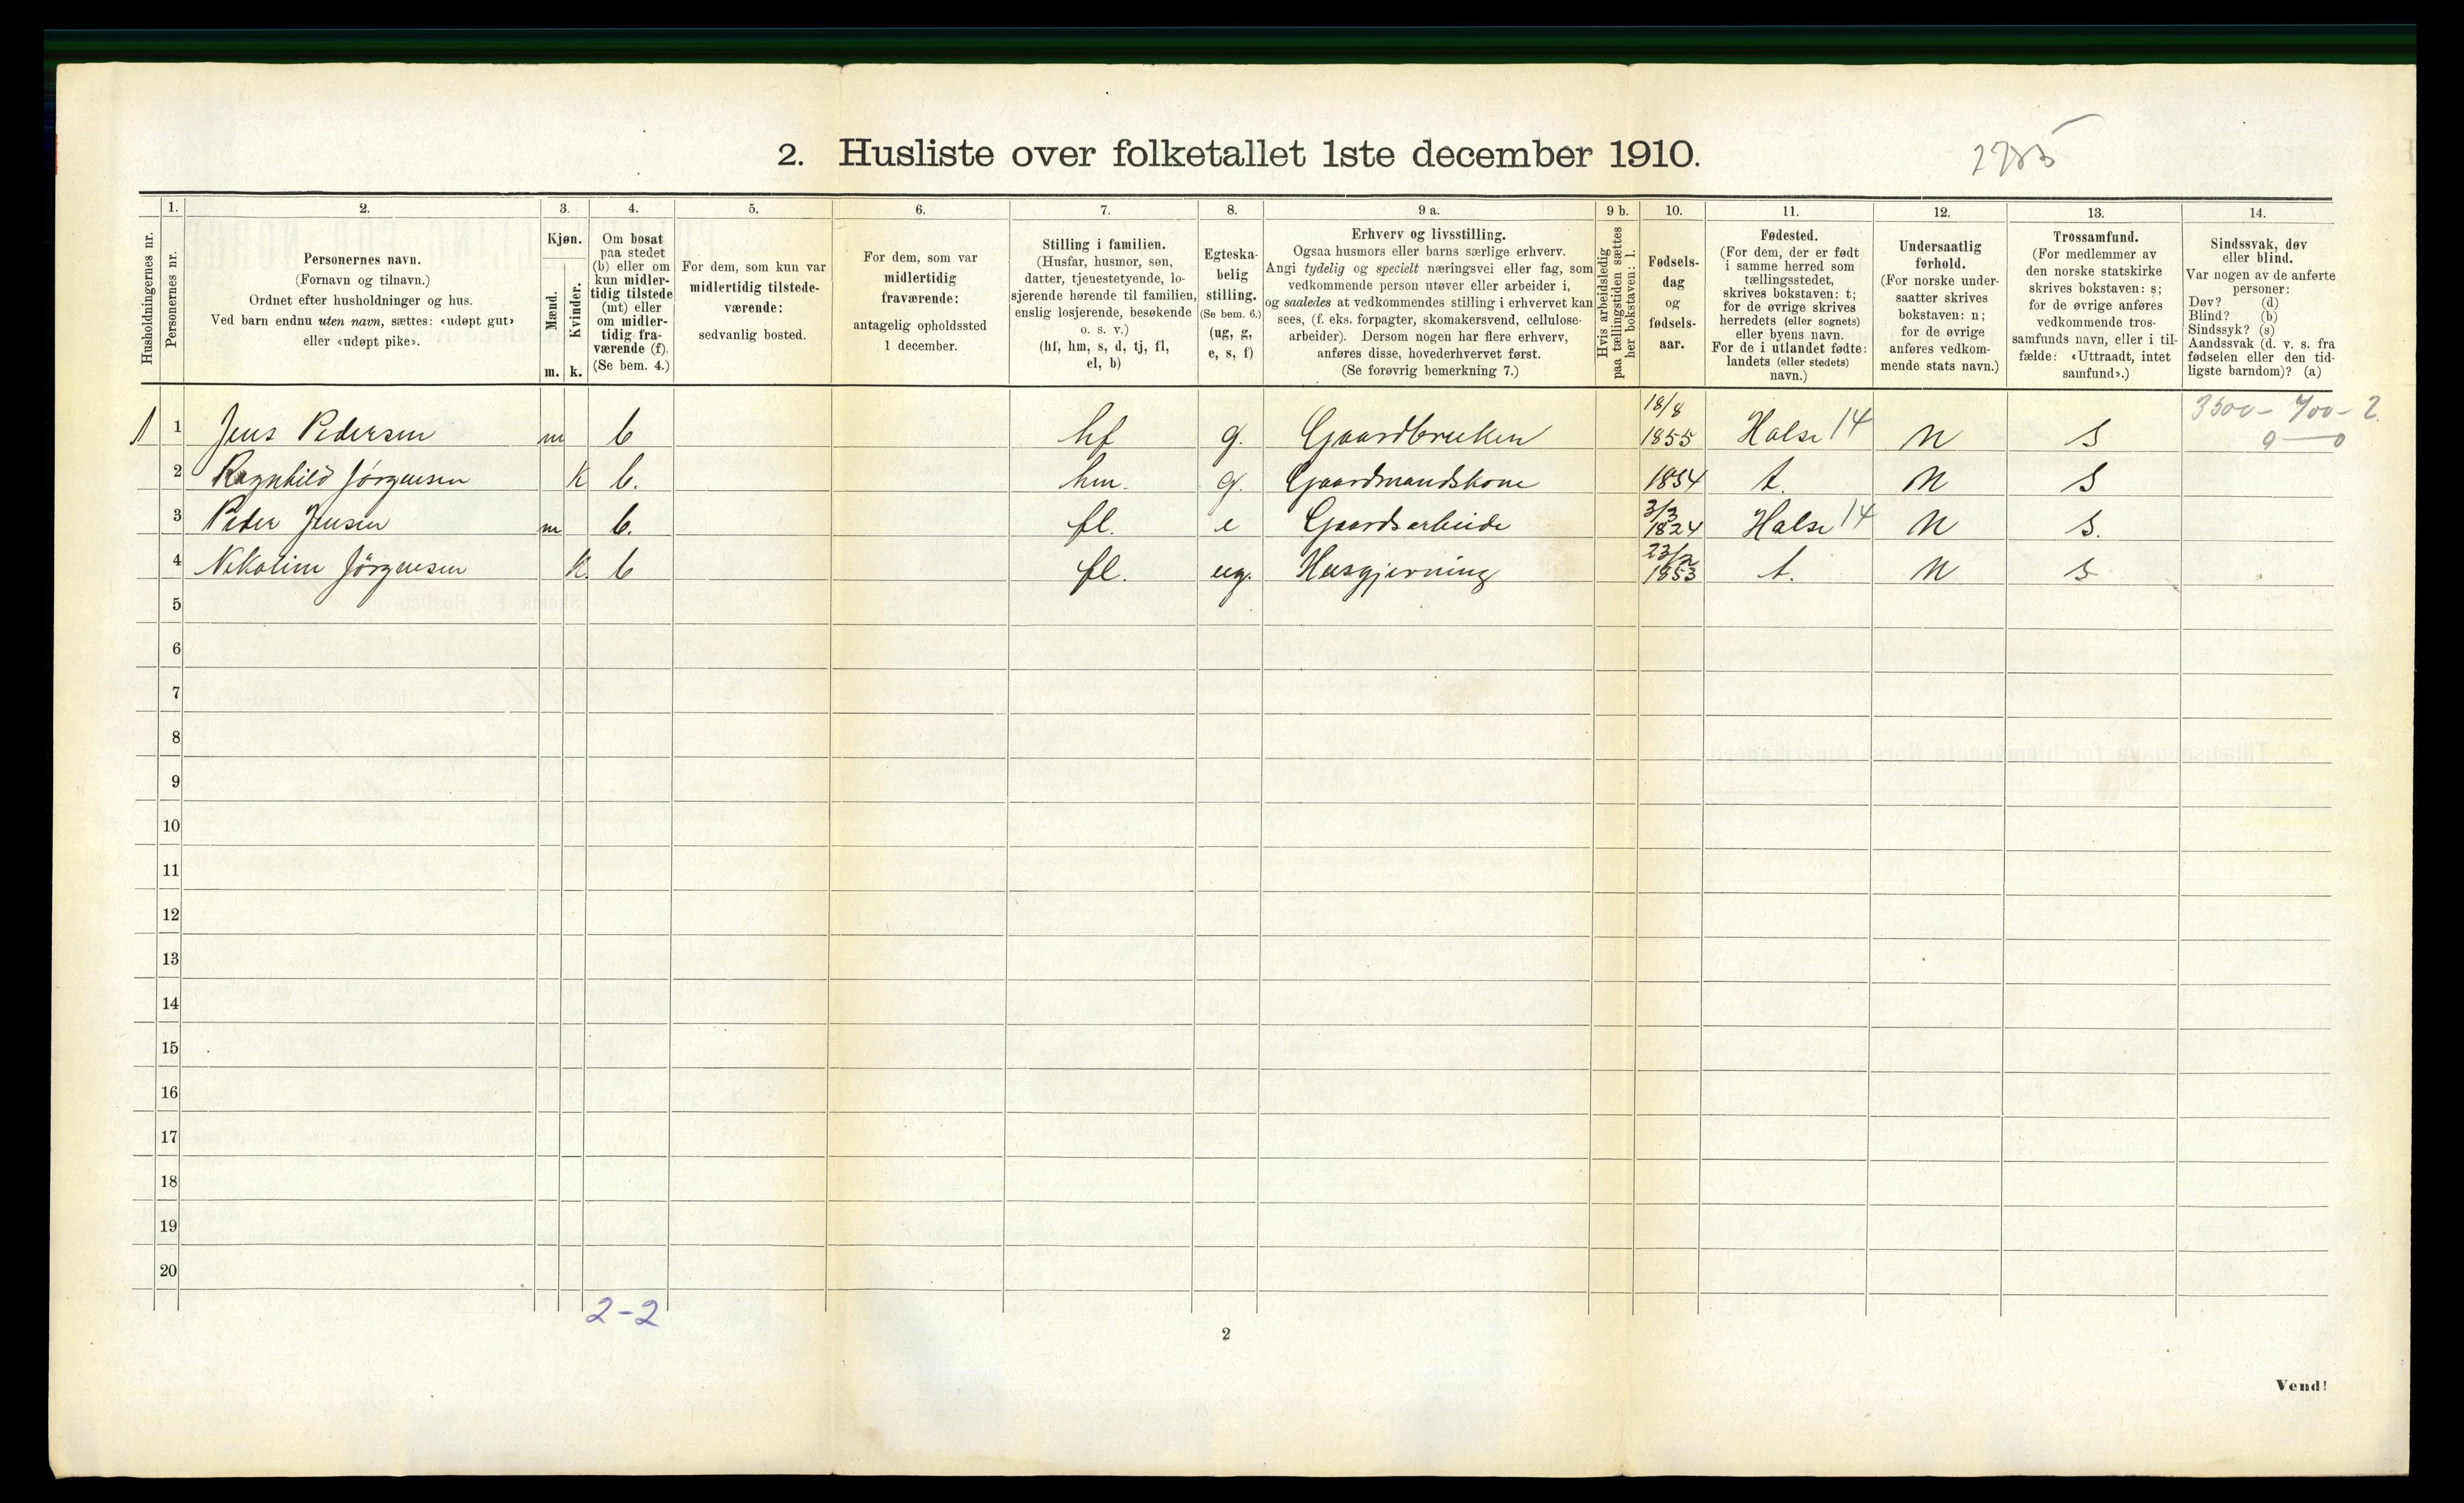 2. Husliste over folketallet 1ste december 1910.
Husholdningernes nr.
1.
Personernes nr.
2.
Personernes navn.
(Fornavn og tilnavn.)
Ordnet efter husholdninger og hus.
Ved barn endnu uten navn, sættes: «udøpt gut»
eller «udøpt pike».
3.
Kjøn.
Mænd.
Kvinder.
m. k.
4.
Om bosat
paa stedet
(b) eller om
kun midler-
tidig tilstede
(mt) eller
om midler-
tidig fra-
værende (f).
(Se bem. 4.)
5.
For dem, som kun var
midlertidig tilstede-
værende:
sedvanlig bosted.
6.
For dem, som var
midlertidig
fraværende:
antagelig opholdssted
1 december.
7.
Stilling i familien.
(Husfar, husmor, søn,
datter, tjenestetyende, lo-
sjerende hørende til familien,
enslig losjerende, besøkende
o. s. v.)
(hf, hm, s, d, tj, fl,
el, b)
8.
Egteska-
belig
stilling.
(Se bem. 6.)
(ug, g,
e, s, f)
9 a.
Erhverv og livsstilling.
Ogsaa husmors eller barns særlige erhverv.
Angi tydelig og specielt næringsvei eller fag, som
vedkommende person utøver eller arbeider i,
og saaledes at vedkommendes stilling i erhvervet kan
sees, (f. eks. forpagter, skomakersvend, cellulose-
arbeider). Dersom nogen har flere erhverv,
anføres disse, hovederhvervet først.
(Se forøvrig bemerkning 7.)
9 b.
Hvis arbeidsledig
paa tællingstiden sættes
her bokstaven: l.
10.
Fødsels-
dag
og
fødsels-
aar.
11.
Fødested.
(For dem, der er født
i samme herred som
tællingsstedet,
skrives bokstaven: t;
for de øvrige skrives
herredets (eller sognets)
eller byens navn.
For de i utlandet fødte:
landets (eller stedets)
navn.)
12.
Undersaatlig
forhold.
(For norske under-
saatter skrives
bokstaven: n;
for de øvrige
anføres vedkom-
mende stats navn.)
13.
Trossamfund.
(For medlemmer av
den norske statskirke
skrives bokstaven: s;
for de øvrige anføres
vedkommende tros-
samfunds navn, eller i til-
fælde: «Uttraadt, intet
samfund».)
14.
Sindssvak, døv
eller blind.
Var nogen av de anførte
personer:
Døv? (d)
Blind? (b)
Sindssyk? (s)
Aandssvak (d. v. s. fra
fødselen eller den tid-
ligste barndom)? (a)
3500 - 700 - 2
0 — 0
1 1 Jens Pedersen m b hf g. Gaardbruken 18/8 1855 Halse 14 N S
2 Ragnhild Jörgensen K b. hm. g. Gaardmandskone 1854 t. N S
3 Peder Jensen m b. fl. e Gaardsarbeide 3/3 1824 Halse 14 N S.
4 Nikoline Jörgensen K. b fl. ug. Husgjerning 1853 t. N S
5
6
7
8
9
10
11
12
13
14
15
16
17
18
19
20
2-2
2
Vend!